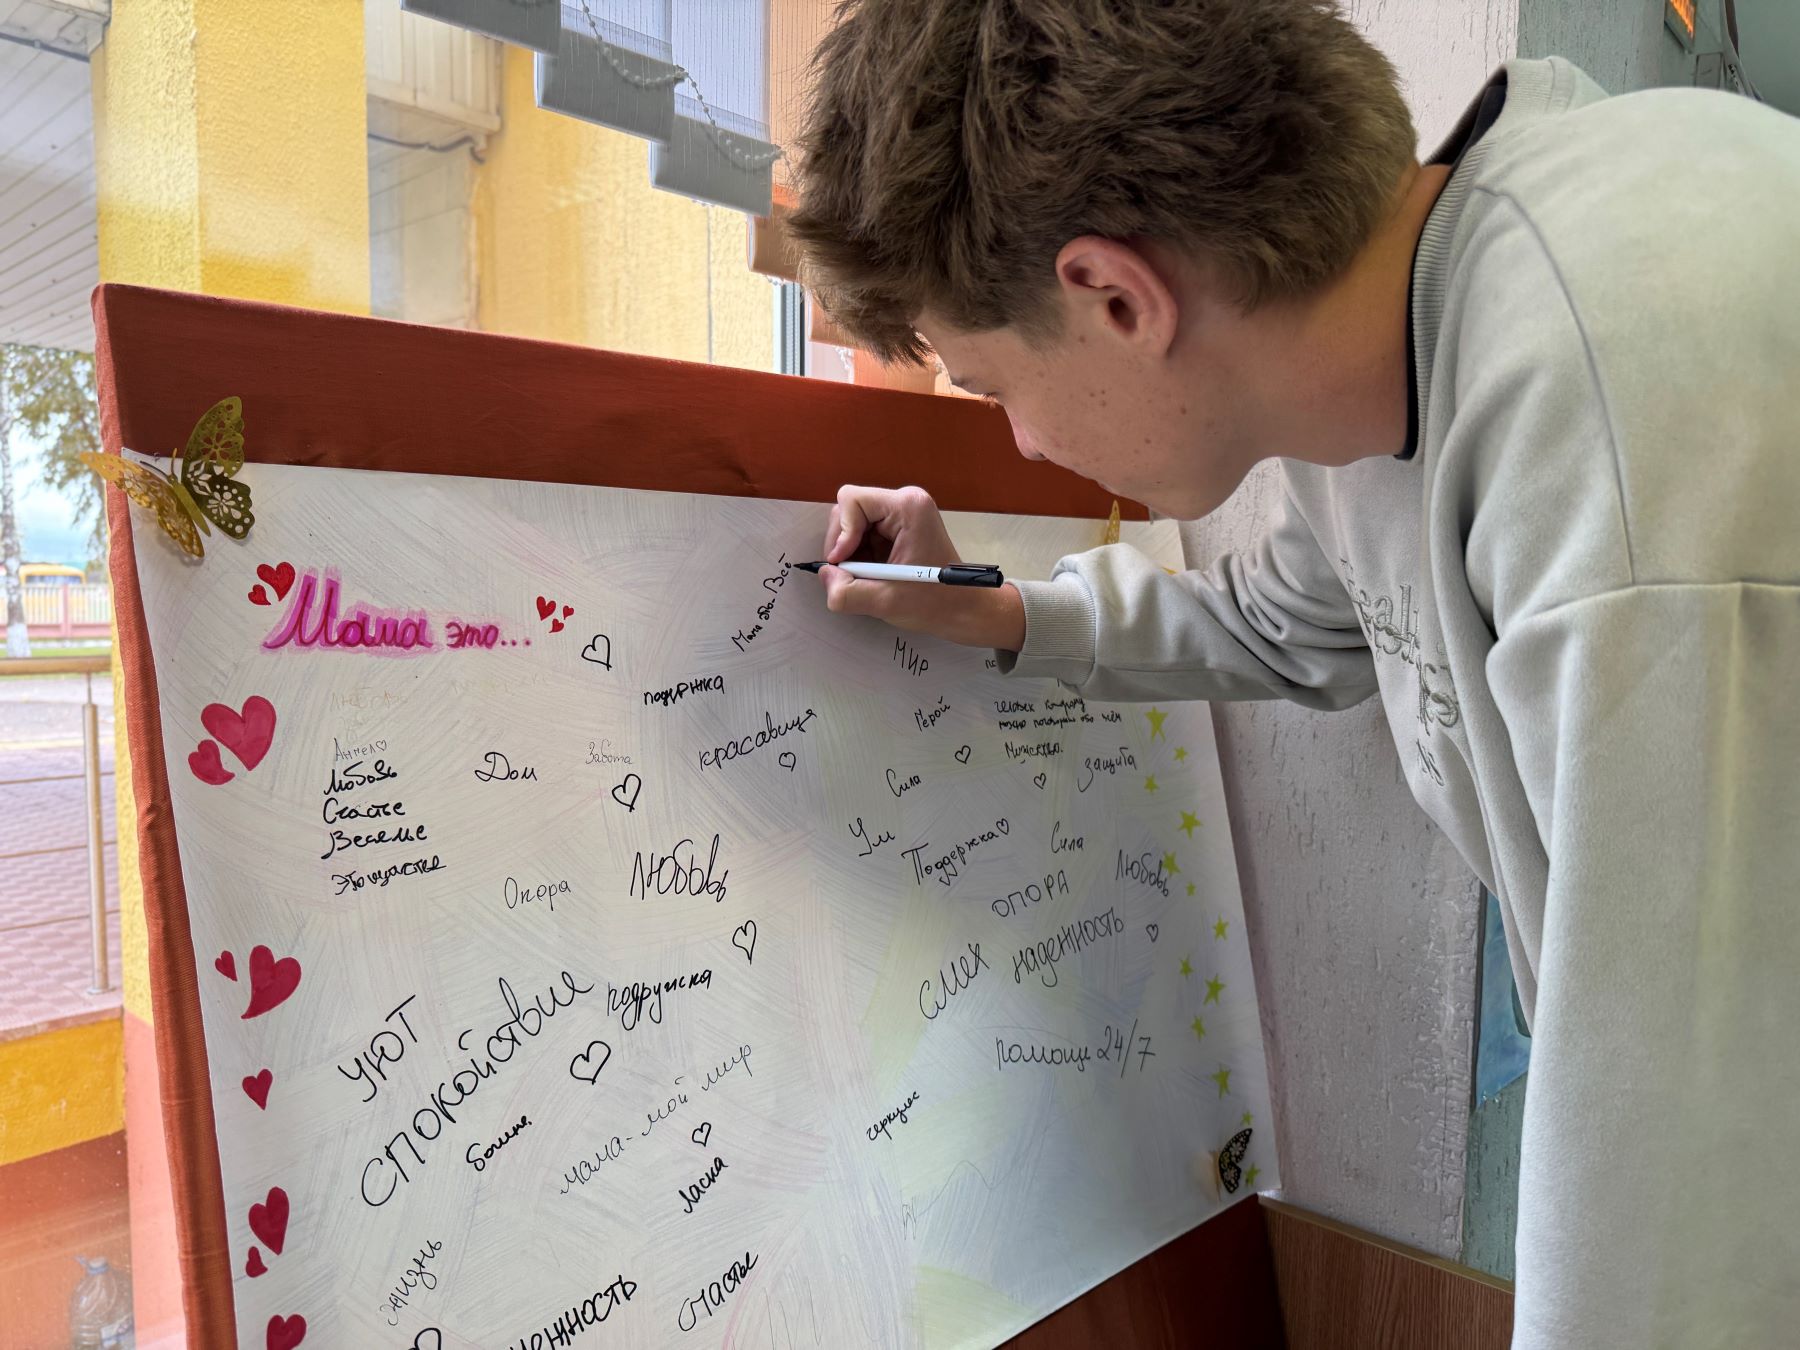 Мама это...
Мама это- Всё
поддержка
Мир
Ангел♡
Любовь
Счастье
Веселье
Это счастье
Дом
Забота
красавица
Герой
человек которому
можно поговорить обо всём
Мужество.
Сила
защита
Ум
Поддержка♡
Сила
Опора
Любовь
ОПОРА
Любовь
смех
надежность
уют
спокойствие
подружка
помощь 24/7
мама-мой мир
геркулес
ласка
жизнь
счастье